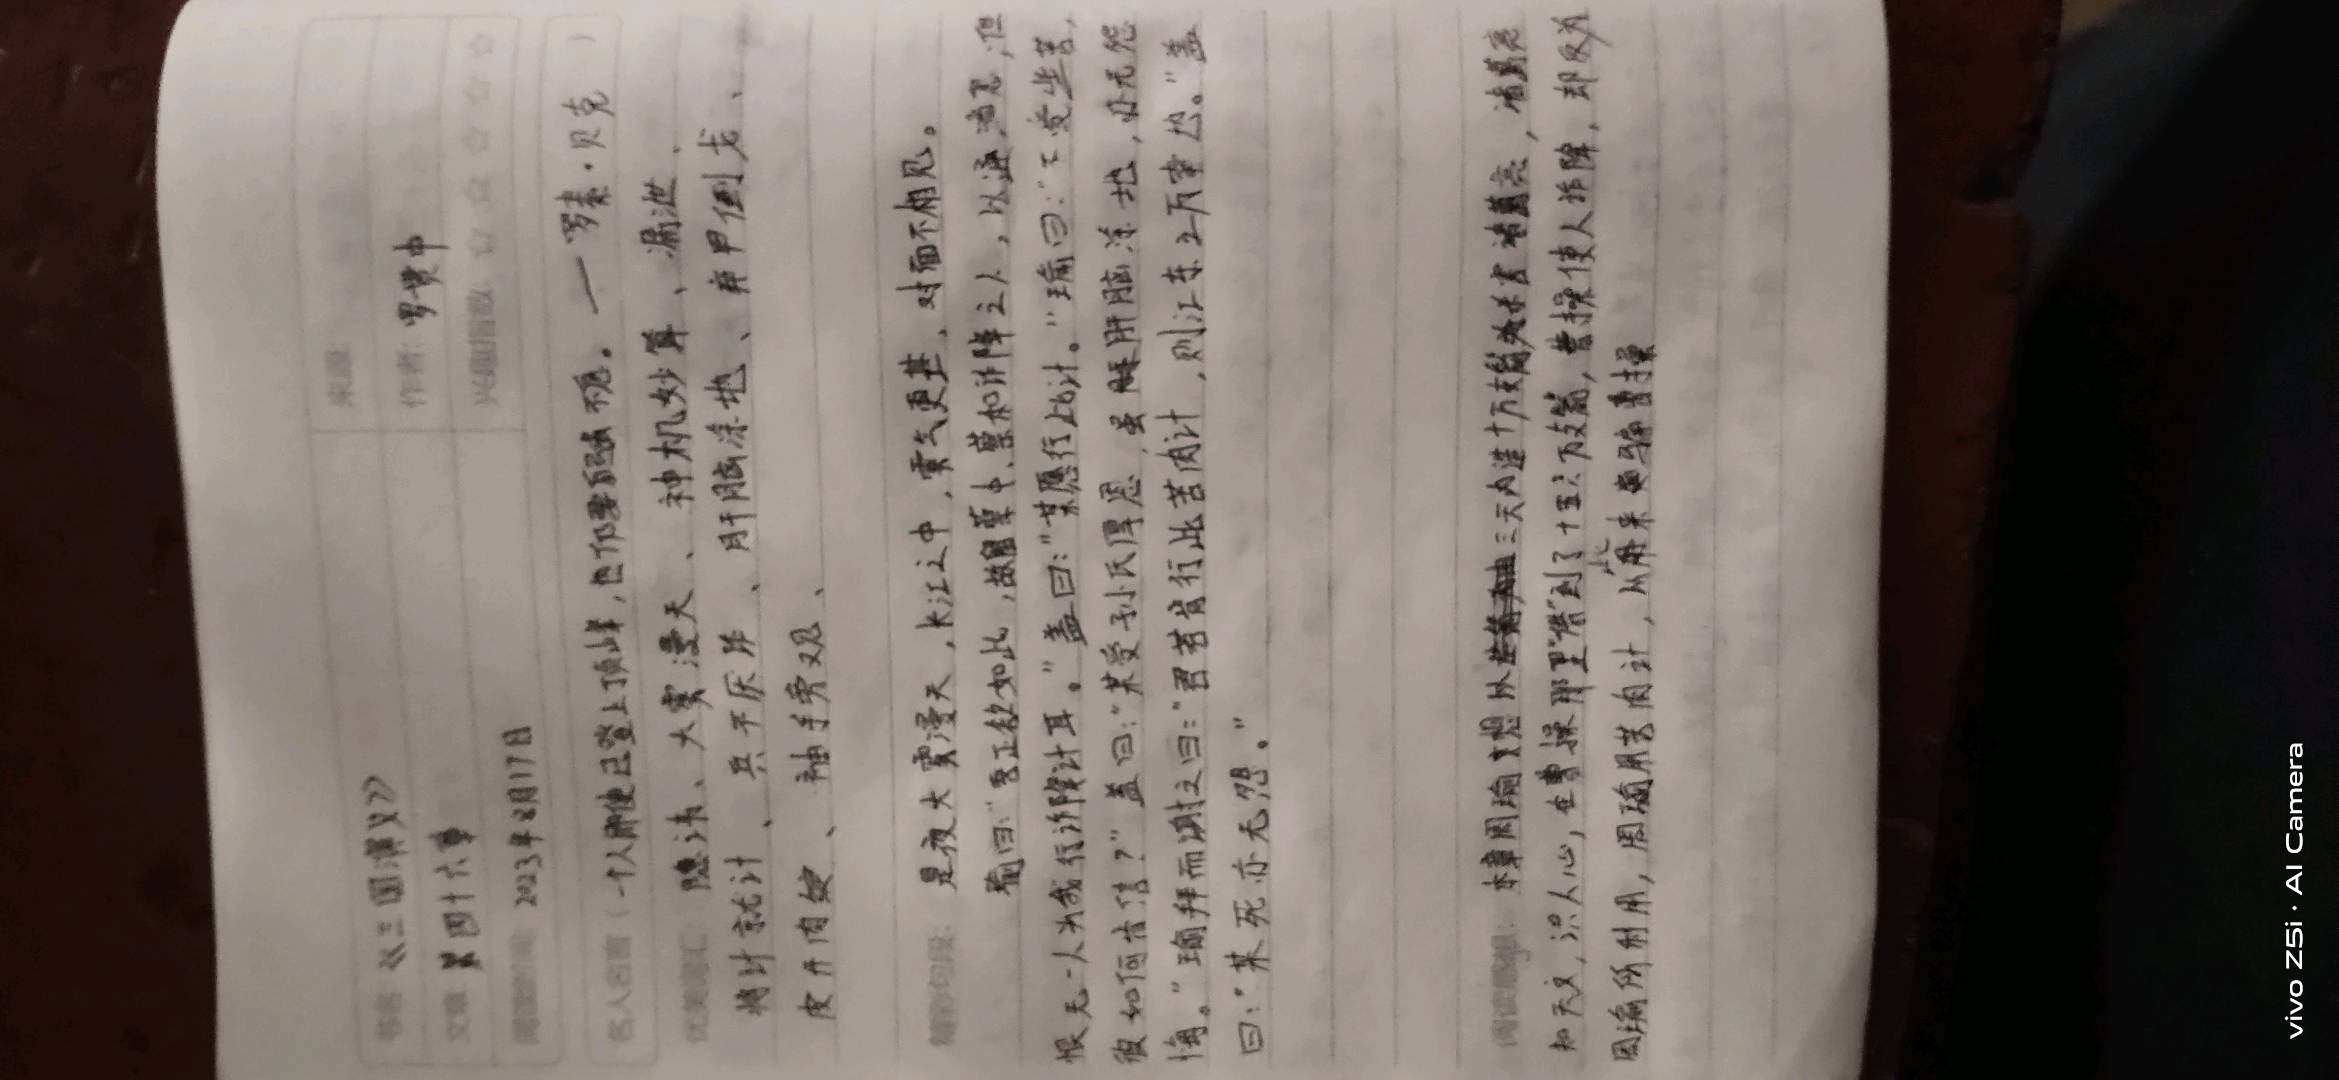 书名 《三国演义》 来源:
文章: 第四十六章 作者: 罗贯中
阅读时间: 2023年8月17日 兴趣指数 ☆ ☆ ☆ ☆ ☆
名人名言 ( 一个人即使已登上顶峰,也仍要自强不息。— 罗素·贝克 )
优美词汇: 隐讳、大雾漫天、神机妙算、漏泄、
将计就计、兵不厌诈、肝脑涂地、弃甲倒戈、
皮开肉绽、袖手旁观、
精彩句段: 是夜大雾漫天,长江之中,雾气更甚,对面不相见。
瑜曰:"吾正欲如此,故留蔡中、蔡和诈降之人,以通消息;但
恨无一人为我行诈降计耳。"盖曰:"某愿行此计。"瑜曰:"不受些苦,
彼如何肯信?"盖曰:"某受孙氏厚恩,虽肝脑涂地,亦无怨
悔。"瑜拜而谢之曰:"君若肯行此苦肉计,则江东之万幸也。"盖
曰:"某死亦无怨。"
阅读感想: 本章周瑜想以三天内造十万支箭诸葛亮,诸葛亮
知天文,识人心,在曹操那里"借"到了十五六万支箭,曹操使人诈降,却反为
周瑜所利用,周瑜用苦肉计,从此用来骗曹操
vivo Z5i · AI Camera